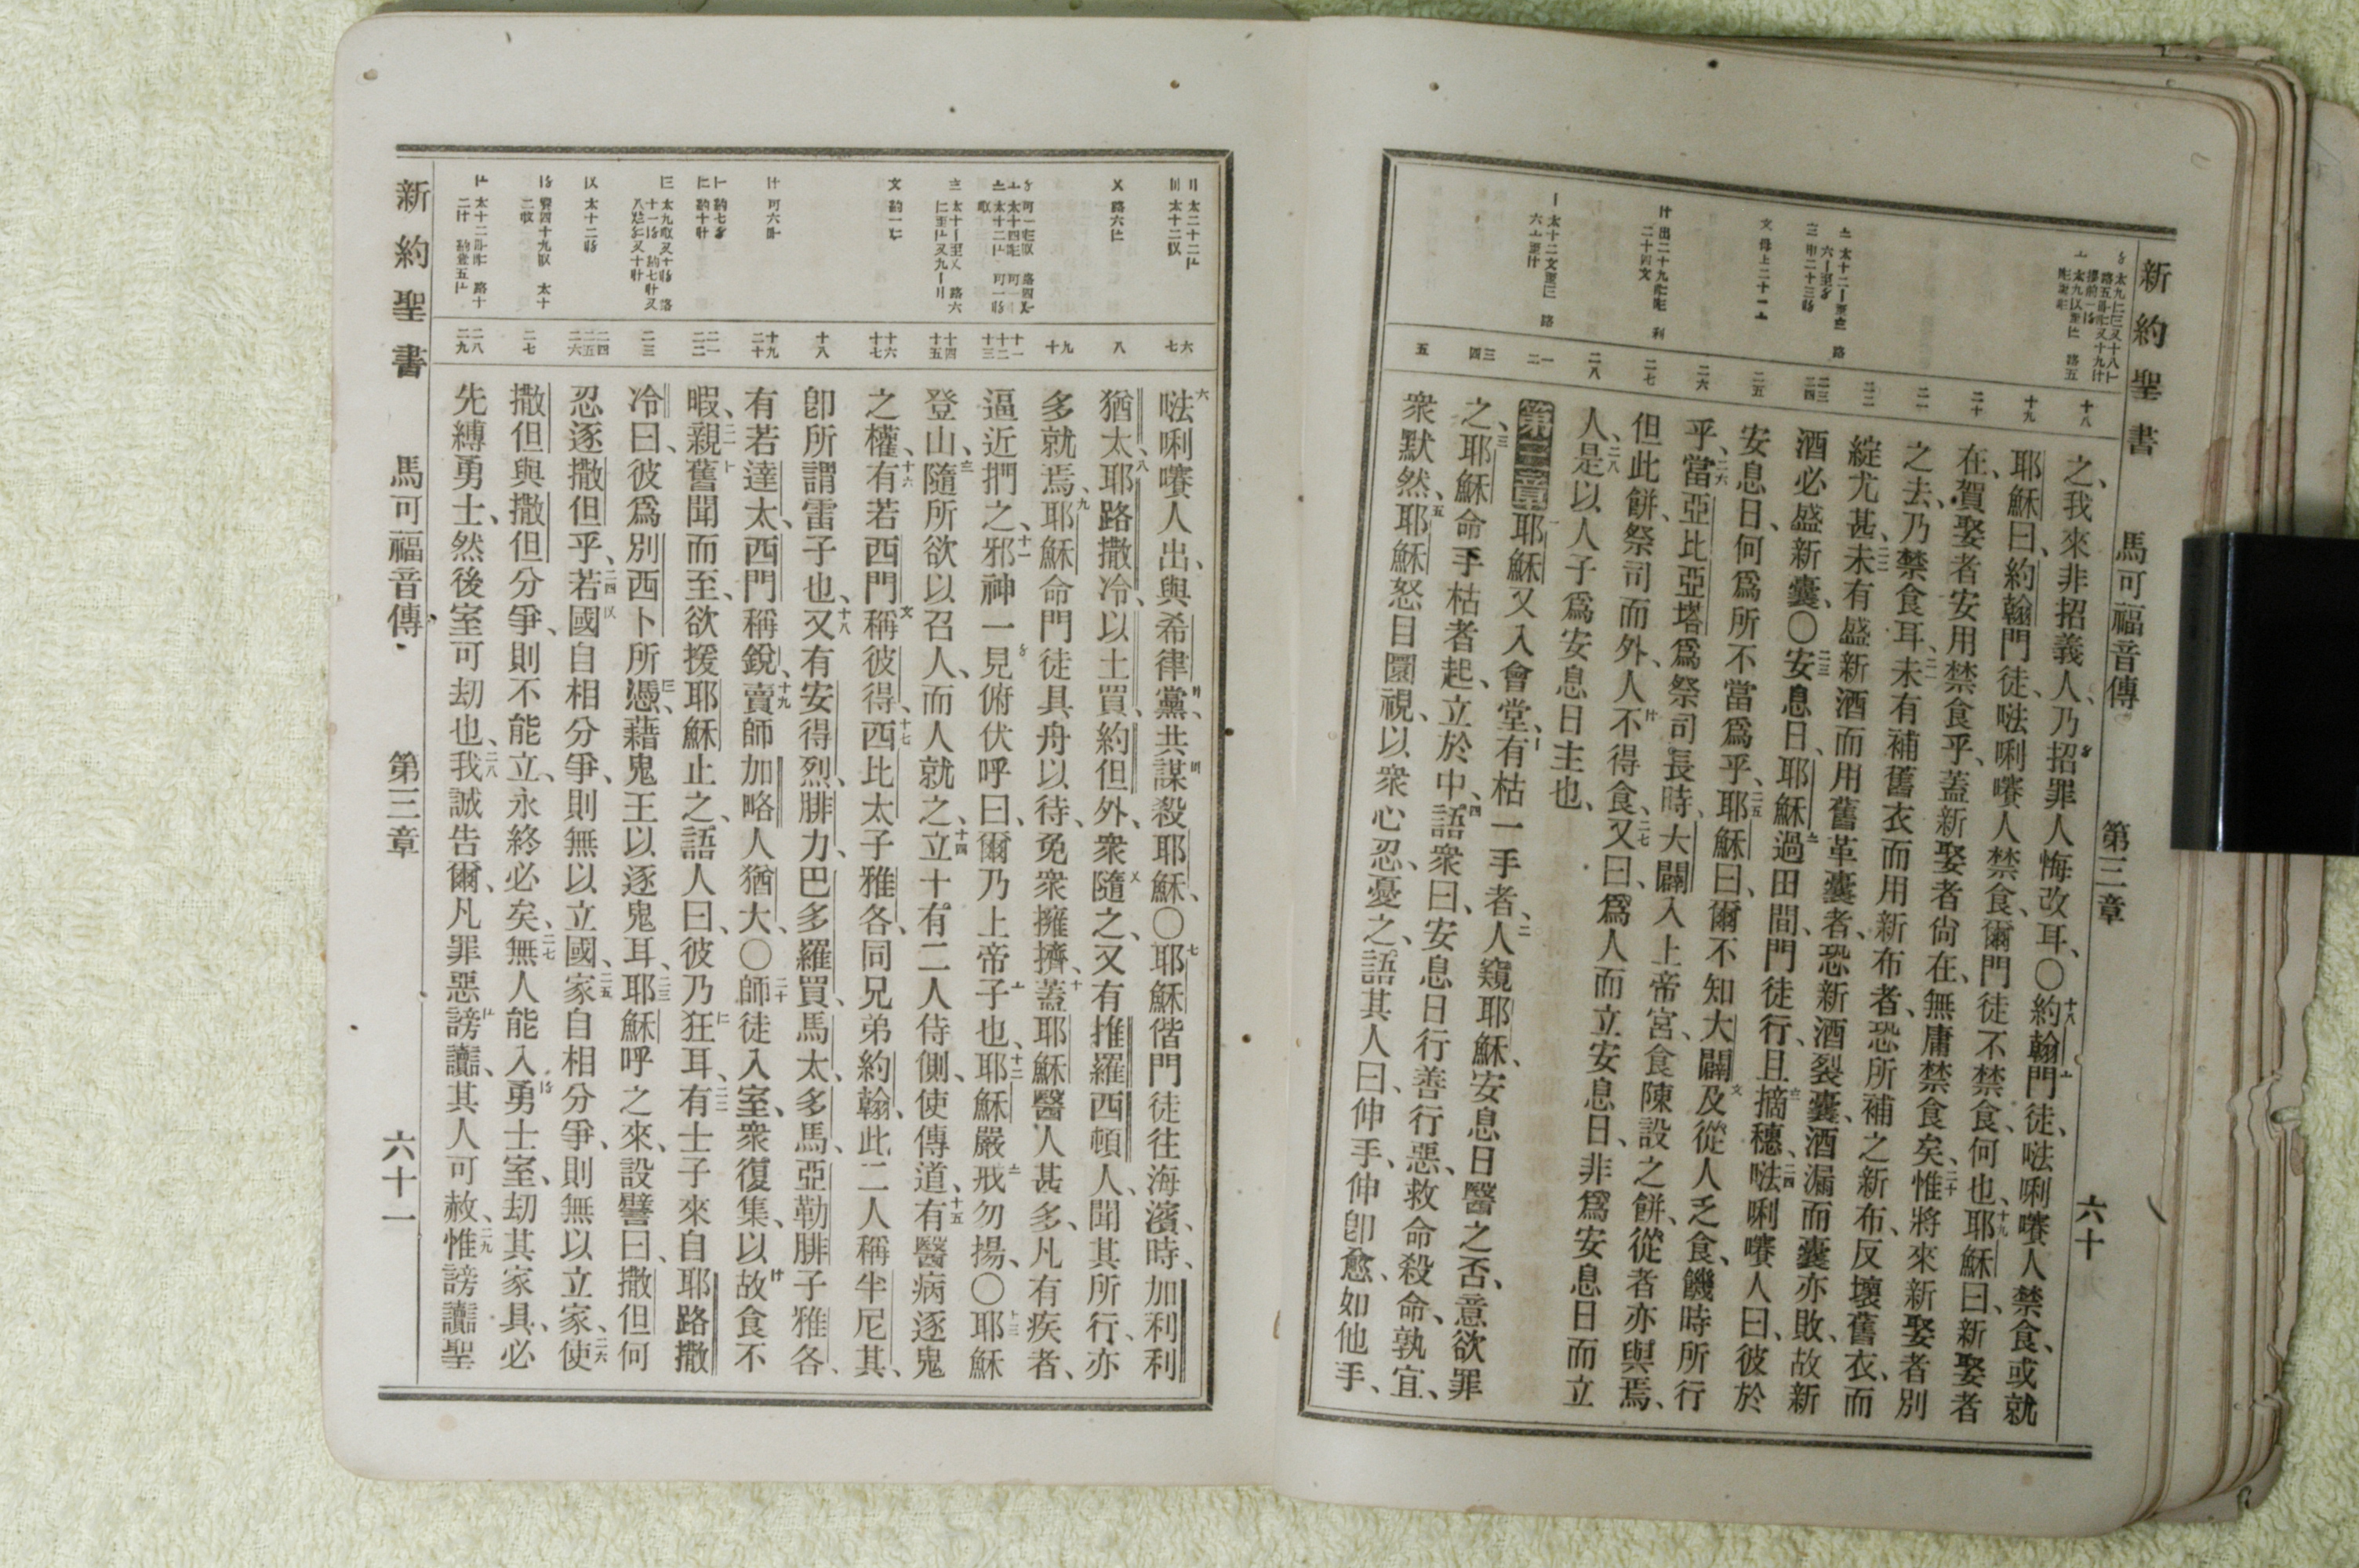 新約聖書 馬可福音傳 第三章 六十
十八
十九
二十
二一
二二
二三
二四
二五
二六
二七
二八
一
二
三
四
五
之、我來非招義人、乃招罪人悔改耳、〇十八約翰門徒、㗂唎㘔人禁食、或就
耶穌曰、約翰門徒、㗂唎㘔人禁食、爾門徒不禁食、何也、十九耶穌曰、新娶者
在、賀娶者安用禁食乎、蓋新娶者尙在、無庸禁食矣、二十惟將來新娶者別
之去、乃禁食耳、二一未有補舊衣而用新布者、恐所補之新布、反壞舊衣、而
綻尤甚、二二未有盛新酒而用舊革囊者、恐新酒裂囊、酒漏而囊亦敗、故新
酒必盛新囊、〇二三安息日、耶穌過田間、門徒行、且摘穗、二四㗂唎㘔人曰、彼於
安息日、何爲所不當爲乎、二五耶穌曰、爾不知大闢及從人乏食、饑時所行
乎、二六當亞比亞塔爲祭司長時、大闢入上帝宮、食陳設之餅、從者亦與焉、
但此餅、祭司而外、人不得食、二七又曰、爲人而立安息日、非爲安息日而立
人、二八是以人子爲安息日主也、
第三章 耶穌又入會堂、有枯一手者、二人窺耶穌、安息日醫之否、意欲罪
之、三耶穌命手枯者起、立於中、四語衆曰、安息日行善行惡、救命殺命、孰宜、
衆默然、五耶穌怒目圜視、以衆心忍、憂之、語其人曰、伸手、伸卽愈、如他手、
六
七
八
九
十
十一
十二
十三
十四
十五
十六
十七
十八
十九
二十
二一
二二
二三
二四
二五
二六
二七
二八
二九
六㗂唎㘔人出、與希律黨、共謀殺耶穌、〇七耶穌偕門徒往海濱、時、加利利
猶太、八耶路撒冷、以土買、約但外、衆隨之、又有推羅西頓人、聞其所行、亦
多就焉、九耶穌命門徒具舟以待、免衆擁擠、十蓋耶穌醫人甚多、凡有疾者、
逼近捫之、十一邪神一見俯伏呼曰、爾乃上帝子也、十二耶穌嚴戒勿揚、〇十三耶穌
登山、隨所欲以召人、而人就之、十四立十有二人侍側、使傳道、十五有醫病逐鬼
之權、十六有若西門稱彼得、十七西比太子雅各、同兄弟約翰、此二人稱半尼其、
卽所謂雷子也、十八又有安得烈、腓力、巴多羅買、馬太、多馬、亞勒腓子雅各、
有若達太、西門稱銳、十九賣師加略人猶大、〇二十師徒入室、衆復集、以故食不
暇、二一親舊聞而至、欲援耶穌止之、語人曰、彼乃狂耳、二二有士子來自耶路撒
冷曰、彼爲別西卜所憑、藉鬼王以逐鬼耳、二三耶穌呼之來、設譬曰、撒但何
忍逐撒但乎、二四若國自相分爭、則無以立國、二五家自相分爭、則無以立家、二六使
撒但與撒但分爭、則不能立、永終必矣、二七無人能入勇士室、刧其家具、必
先縛勇士、然後室可刧也、二八我誠告爾、凡罪惡謗讟、其人可赦、二九惟謗讟聖
新約聖書 馬可福音傳 第三章 六十一